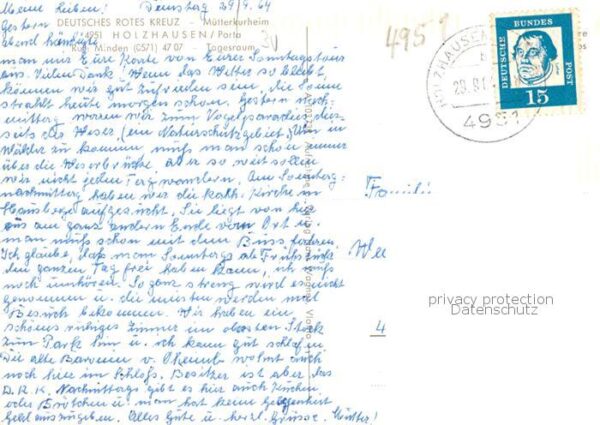 Meine Lieben! Dienstag 29.9.64
DEUTSCHES ROTES KREUZ - Mütterkurheim
4951 HOLZHAUSEN / Porta
Ruf Minden (0571) 47 07 - Tagesraum
Gestern
abend händigte
man uns Eure Karte von Eurer Sonntagstour
aus. Vielen Dank! Wenn das Wetter so bleibt,
können wir gut zufrieden sein, die Sonne
strahlt heute morgen schon. Gestern nach-
mittag waren wir zum Vogelparadies dies-
seits der Weser (ein Naturschutzgebiet) Um in
Wälder zu kommen muß man schon immer
über die Weserbrücke aber so weit sollen
wir nicht jeden Tag wandern. Am Sonntag-
nachmittag haben wir die kath. Kirche in
Hausberge aufgesucht. Sie liegt von hier
aus am ganz andern Ende vom Ort u.
man muß schon mit dem Bus fahren.
Ich glaube, daß man Sonntags ab Frühstück
den ganzen Tag frei haben kann, ich muß
noch umhören. So ganz streng wird es nicht
genommen u. die meisten werden mal
Besuch bekommen. Wir haben ein
schönes ruhiges Zimmer im obersten Stock
zum Park hin u. ich kann gut schlafen.
Die alte Baronin v. wohnt auch
noch hier im Schloß. Besitzer ist aber das
D.R.K. Nachmittags gibt es hier auch Kuchen
oder Brötchen u. man hat keine Gelegenheit
Geld auszugeben. Alles Gute u. herzl. Grüsse. Mutter!
4951
HOLZHAUSEN
4951
DEUTSCHE BUNDESPOST
15
Famili
4
privacy protection
Datenschutz